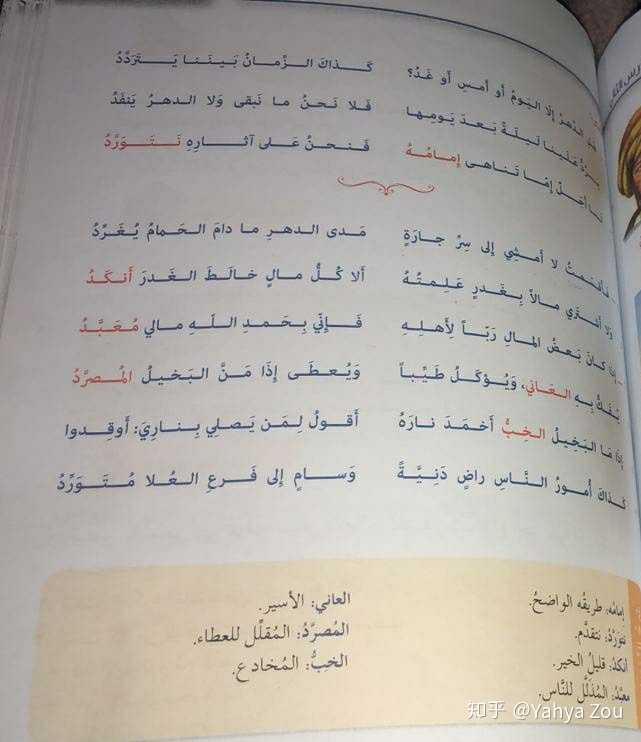 الدهرُ إِلّا اليَومُ أَو أَمسِ أَو غَدُ؟ كَذاكَ الزَّمانُ بَينَنا يَتَرَدَّدُ
عَلَينا لَيلَةً بَعدَ يَومِها فَلا نَحنُ ما نَبقى وَلا الدهرُ يَنفَدُ
أَجَلٌ إِمّا تَناهى إِمامُهُ فَنَحنُ عَلى آثارِهِ نَتَوَرَّدُ
فَأَقسَمتُ لا أَمشِي إِلى سِرِّ جارَةٍ مَدى الدهرِ ما دامَ الحَمامُ يُغَرِّدُ
وَلا أَشتَرِي مالاً بِغَدرٍ عَلِمتُهُ أَلا كُلُّ مالٍ خالَطَ الغَدرَ أَنكَدُ
إِذا كانَ بَعضُ المالِ رَبّاً لِأَهلِهِ فَإِنّي بِحَمدِ اللَهِ مالي مُعَبَّدُ
يُفَكُّ بِهِ العَاني، وَيُؤكَلُ طَيِّباً وَيُعطَى إِذَا مَنَّ البَخيلُ المُصرَّدُ
إِذَا مَا البَخِيلُ الخِبُّ أَخمَدَ نارَهُ أَقولُ لِمَن يَصلي بِنارِيَ: أَوقِدوا
كَذاكَ أُمورُ النَّاسِ راضٍ دَنِيَّةً وَسامٍ إِلى فَرعِ العُلا مُتَوَرِّدُ
إمامُه: طريقُه الواضحُ.
نتورّدُ: نتقدّم.
أنكدُ: قليلُ الخير.
معبّدُ: المُذَلَّل للنَّاس.
العاني: الأسير.
المُصرَّدُ: المُقلّل للعطاء.
الخبُّ: المُخادع.
知乎 @Yahya Zou